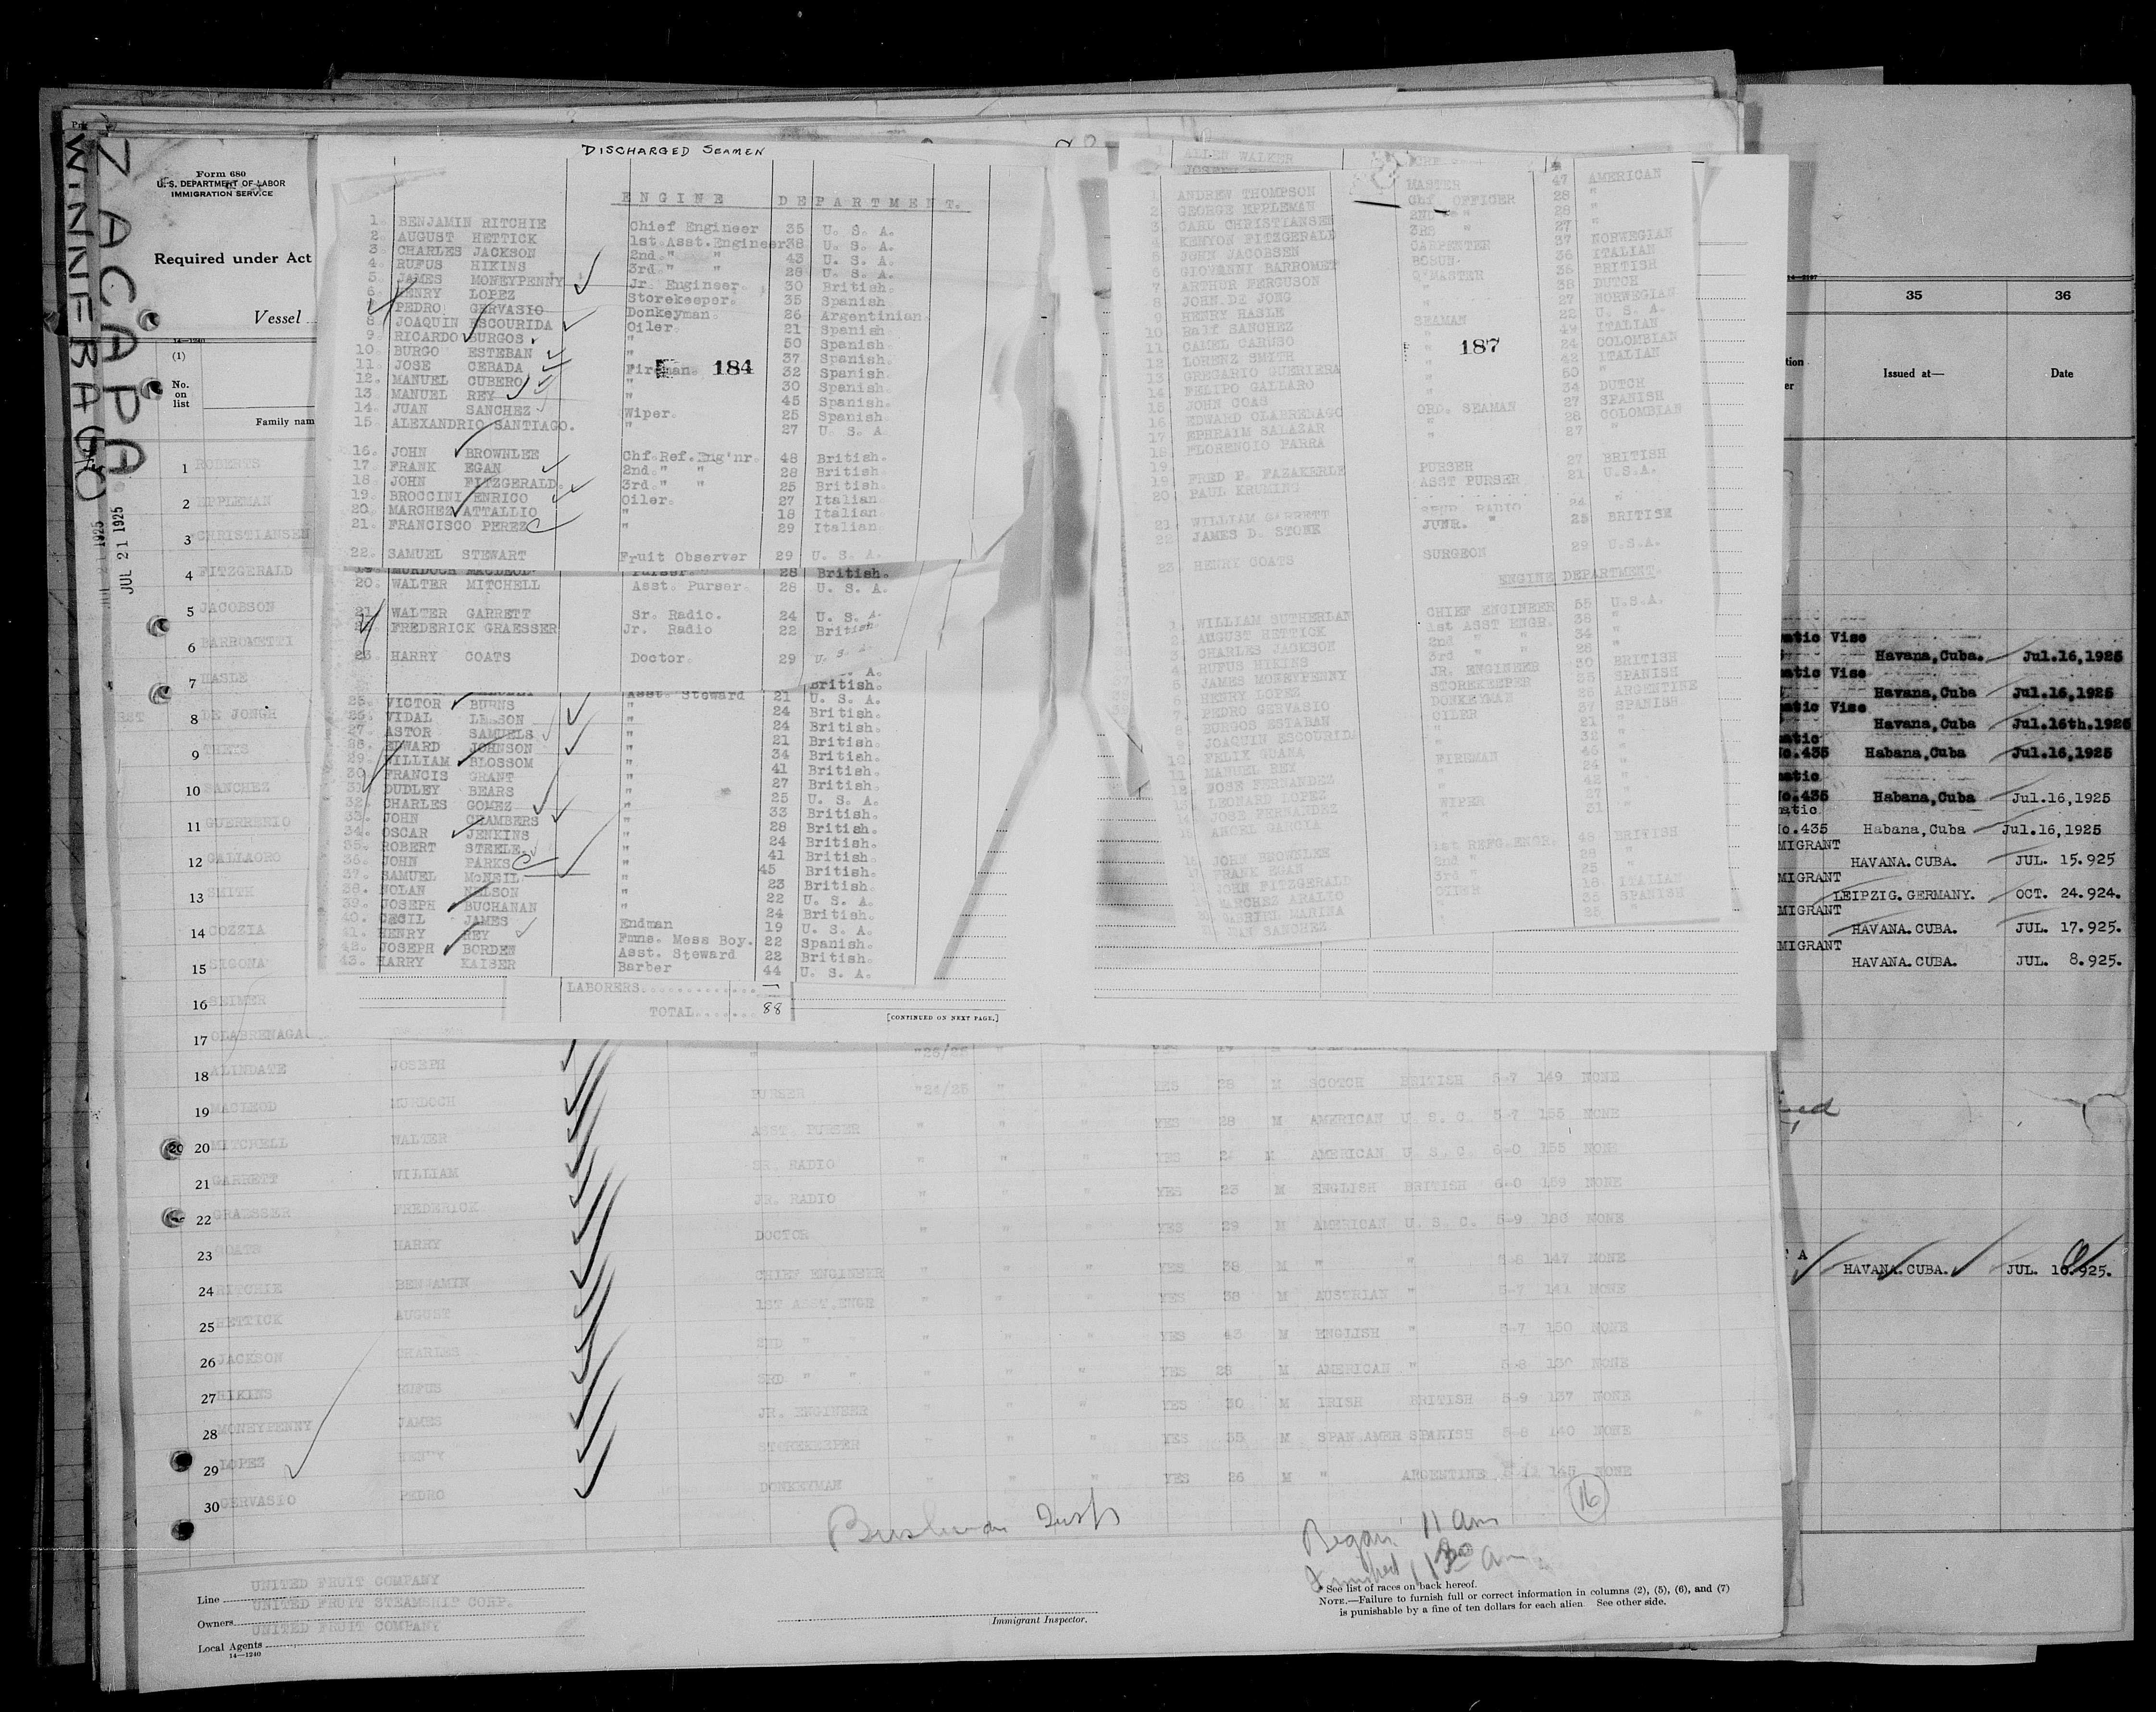 ZACAPA
WINNEBAGO
JUL 21 1925
Form 680
U. S. DEPARTMENT OF LABOR
IMMIGRATION SERVICE
Required under Act
Vessel
14—1240
(1)
No. on list
Family nam
DISCHARGED SEAMEN
ENGINE DEPARTMENT.
1. BENJAMIN RITCHIE Chief Engineer 35 U. S. A.
2. AUGUST HETTICK 1st.Asst.Engineer 38 U. S. A.
3. CHARLES JACKSON 2nd. " " 43 U. S. A.
4. RUFUS HIKINS 3rd. " " 28 U. S. A.
5. JAMES MONEYPENNY Jr. Engineer. 30 British.
6. HENRY LOPEZ Storekeeper. 35 Spanish
7. PEDRO GERVASIO Donkeyman. 26 Argentinian.
8. JOAQUIN ESCOURIDA Oiler. 21 Spanish.
9. RICARDO BURGOS. " 50 Spanish.
10. BURGO ESTEBAN " 37 Spanish.
11. JOSE CEBADA Fireman. 32 Spanish.
12. MANUEL CUBERO " 30 Spanish.
13. MANUEL REY " 45 Spanish.
14. JUAN SANCHEZ Wiper. 25 Spanish.
15. ALEXANDRIO SANTIAGO. " 27 U. S. A
184
16. JOHN BROWNLEE Chf.Ref.Eng'nr. 48 British.
17. FRANK EGAN 2nd. " " 28 British.
18. JOHN FITZGERALD. 3rd. " " 25 British.
19. BROCCINI ENRICO Oiler. 27 Italian.
20. MARCHEZ ATTALLIO " 18 Italian.
21. FRANCISCO PEREZ " 29 Italian.
22. SAMUEL STEWART Fruit Observer 29 U. S. A.
19. MURDOCH MACLEOD Purser. 28 British.
20. WALTER MITCHELL Asst. Purser. 28 U. S. A.
21 WALTER GARRETT Sr. Radio. 24 U. S. A.
FREDERICK GRAESSER Jr. Radio 22 British
23 HARRY COATS Doctor. 29 U. S. A.
A.
British.
25. VICTOR BURNS Asst. Steward 21 U. S. A.
26. VIDAL LESSON " 24 British.
27. ASTOR SAMUELS " 24 British.
28. EDWARD JOHNSON " 21 British.
29. WILLIAM BLOSSOM " 34 British.
30. FRANCIS GRANT " 41 British.
31. DUDLEY BEARS " 27 British.
32. CHARLES GOMEZ " 25 U. S. A.
33. JOHN CHAMBERS " 33 British.
34. OSCAR JENKINS " 28 British.
35. ROBERT STEELE. " 24 British.
36. JOHN PARKS " 41 British.
37. SAMUEL McNEIL " 45 British.
38. NOLAN NELSON " 23 British.
39. JOSEPH BUCHANAN " 22 U. S. A.
40. CECIL JAMES " 24 British.
41. HENRY REY Endman 19 U. S. A.
42. JOSEPH BORDEN Fmns. Mess Boy. 22 Spanish.
43. HARRY KAISER Asst. Steward 22 British.
Barber 44 U. S. A.
LABORERS............. —
TOTAL....... 88
[CONTINUED ON NEXT PAGE.]
ALLEN WALKER
1 ANDREW THOMPSON MASTER 47 AMERICAN
2 GEORGE EPPLEMAN Chf OFFICER 28 "
3 CARL CHRISTIANSEN 2ND " " 28 "
4 KENYON FITZGERALD 3RD " 27 "
5 JOHN JACOBSEN CARPENTER 37 NORWEGIAN
6 GIOVANNI BARROMET BOSUN. 36 ITALIAN
7 ARTHUR FERGUSON Q'MASTER 36 BRITISH
8 JOHN DE JONG " 38 DUTCH
9 HENRY HASLE " 27 NORWEGIAN
10 Ralf SANCHEZ " 22 U. S. A.
11 CAMEL CARUSO SEAMAN 49 ITALIAN
12 LORENZ SMITH " 24 COLOMBIAN
13 GREGARIO GUERIERA " 42 ITALIAN
14 FELIPO GALLARO " 50 "
15 JOHN COAS " 34 DUTCH
16 EDWARD OLABRENAGO ORD. SEAMAN 27 SPANISH
17 EPHRAIM SALAZAR " 28 COLOMBIAN
18 FLORENCIO PARRA " 27 "
187
19 FRED P. FAZAKERLE PURSER 27 BRITISH
20 PAUL KRUMING ASST PURSER 21 U.S.A.
21 WILLIAM GARRETT SENR. RADIO 24 "
22 JAMES D. STONE JUNR. " 25 BRITISH
23 HENRY COATS SURGEON 29 U.S.A.
ENGINE DEPARTMENT.
1 WILLIAM SUTHERLAN CHIEF ENGINEER 55 U.S.A.
2 AUGUST HETTICK 1st ASST ENGR. 38 "
3 CHARLES JACKSON 2nd " " 34 "
4 RUFUS HIKINS 3rd " " 28 "
5 JAMES MONEYPENNY JR. ENGINEER 30 BRITISH
6 HENRY LOPEZ STOREKEEPER 35 SPANISH
7 PEDRO GERVASIO DONKEYMAN 26 ARGENTINE
8 BURGOS ESTABAN OILER 37 SPANISH
9 JOAQUIN ESCOURIDA " 21 "
10 FELIX GUANA " 32 "
11 MANUEL REY FIREMAN 46 "
12 JOSE FERNANDEZ " 24 "
13 LEONARD LOPEZ " 42 "
14 JOSE FERNANDEZ WIPER 27 "
15 ANGEL GARCIA " 31 "
JOHN BROWNLEE 1st REFG.ENGR. 48 BRITISH
FRANK EGAN 2nd " 28 "
JOHN FITZGERALD 3rd " 25 "
MARCHEZ ARALIO OILER 18 ITALIAN
GABRIEL MARINA " 35 SPANISH
SANCHEZ " 25 "
1 ROBERTS
2 EPPLEMAN
3 CHRISTIANSEN
4 FITZGERALD
5 JACOBSON
6 BARROMETTI
7 HASLE
8 DE JONGH
9 THETS
10 SANCHEZ
11 GUERRERIO
12 GALLAORO
13 SMITH
14 COZZIA
15 SIGONA
16 REIMER
17 OLABRENAGA
18 ALINDATE JOSEPH
19 MACLEOD MURDOCH PURSER "24/25 " YES 28 M SCOTCH BRITISH 5-7 149 NONE
20 MITCHELL WALTER ASST. PURSER " " " YES 28 M AMERICAN U. S. C. 5-7 155 NONE
21 GARRETT WILLIAM SR. RADIO " " " YES 24 M AMERICAN U. S. C. 6-0 155 NONE
22 GRAESSER FREDERICK JR. RADIO " " " YES 23 M ENGLISH BRITISH 6-0 159 NONE
23 COATS HARRY DOCTOR " " " YES 29 M AMERICAN U. S. C. 5-9 180 NONE
24 RITCHIE BENJAMIN CHIEF ENGINEER " " " YES 38 M " " 5-8 147 NONE
25 HETTICK AUGUST 1ST ASST.ENGR " " " YES 38 M AUSTRIAN " 5-7 141 NONE
26 JACKSON CHARLES 2ND " " " " YES 43 M ENGLISH " 5-7 150 NONE
27 HIKINS RUFUS 3RD " " " " " YES 28 M AMERICAN " 5-8 130 NONE
28 MONEYPENNY JAMES JR. ENGINEER " " " YES 30 M IRISH BRITISH 5-9 137 NONE
29 LOPEZ HENRY STOREKEEPER " " " YES 35 M SPAN AMER SPANISH 5-8 140 NONE
30 GERVASIO PEDRO DONKEYMAN " " " YES 26 M " ARGENTINE 145 NONE
Began 11 am
Finished 11 30 am.
16
Line UNITED FRUIT COMPANY
Owners UNITED FRUIT STEAMSHIP CORP.
Local Agents UNITED FRUIT COMPANY
14—1240
Immigrant Inspector.
* See list of races on back hereof.
NOTE.—Failure to furnish full or correct information in columns (2), (5), (6), and (7)
is punishable by a fine of ten dollars for each alien. See other side.
35 36
Issued at— Date
matic Vise
Havana,Cuba. Jul.16,1925
matic Vise
Havana,Cuba Jul.16,1925
matic Vise
Havana,Cuba Jul.16th.1925
matic
No.435 Habana,Cuba Jul.16,1925
matic
No.435 Habana,Cuba Jul.16,1925
matic
No.435 Habana,Cuba Jul.16,1925
MIGRANT
HAVANA.CUBA. JUL. 15.925
MIGRANT
LEIPZIG.GERMANY. OCT. 24.924.
MIGRANT
HAVANA.CUBA. JUL. 17.925.
MIGRANT
HAVANA.CUBA. JUL. 8.925.
HAVANA.CUBA. JUL. 16.925.